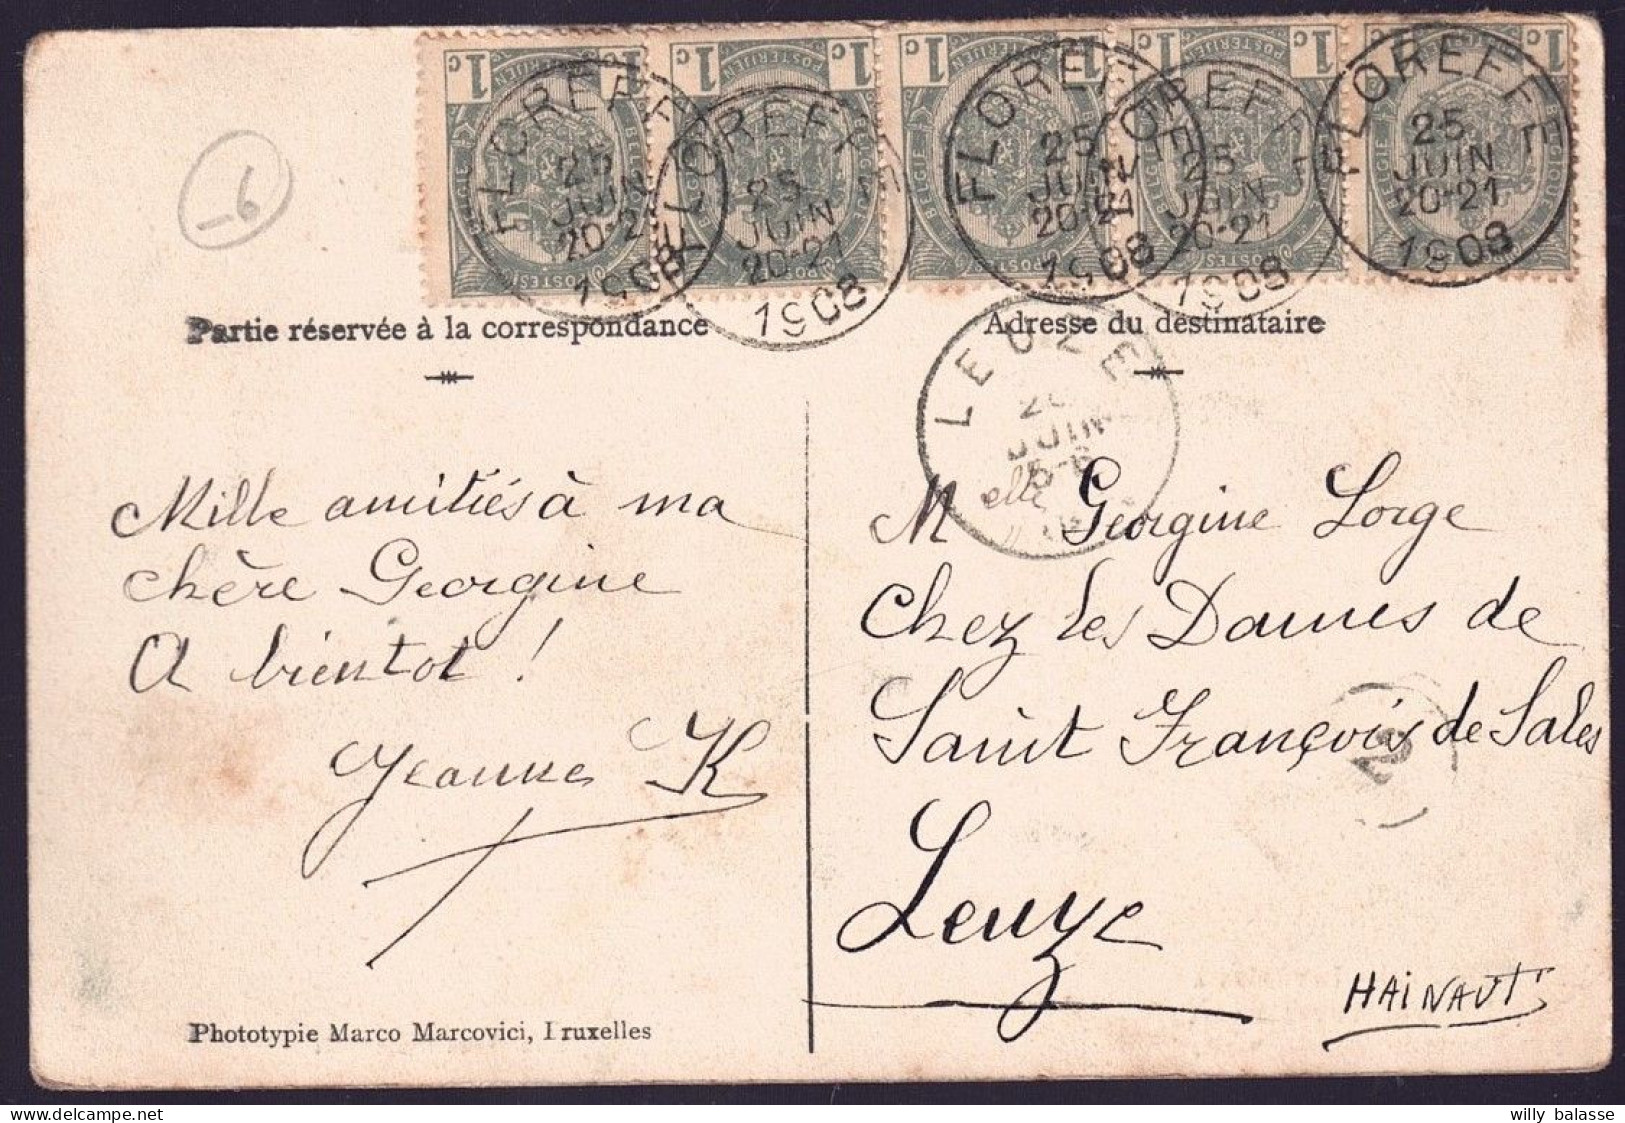 1c 1c 1c 1c 1c 1c 1c 1c 1c 1c
FLOREFFE 25 JUIN 20-21 1908
FLOREFFE 25 JUIN 20-21 1908
FLOREFFE 25 JUIN 20-21 1908
FLOREFFE 25 JUIN 20-21 1908
FLOREFFE 25 JUIN 20-21 1908
-6
Partie réservée à la correspondance
Adresse du destinataire
LEUZE
JUIN
Mille amitiés à ma
chère Georgine
A bientot !
Jeanne K
Melle Georgine Lorge
Chez les Dames de
Saint François de Sales
Leuze
HAINAUT
Phototypie Marco Marcovici, Bruxelles
willy balasse